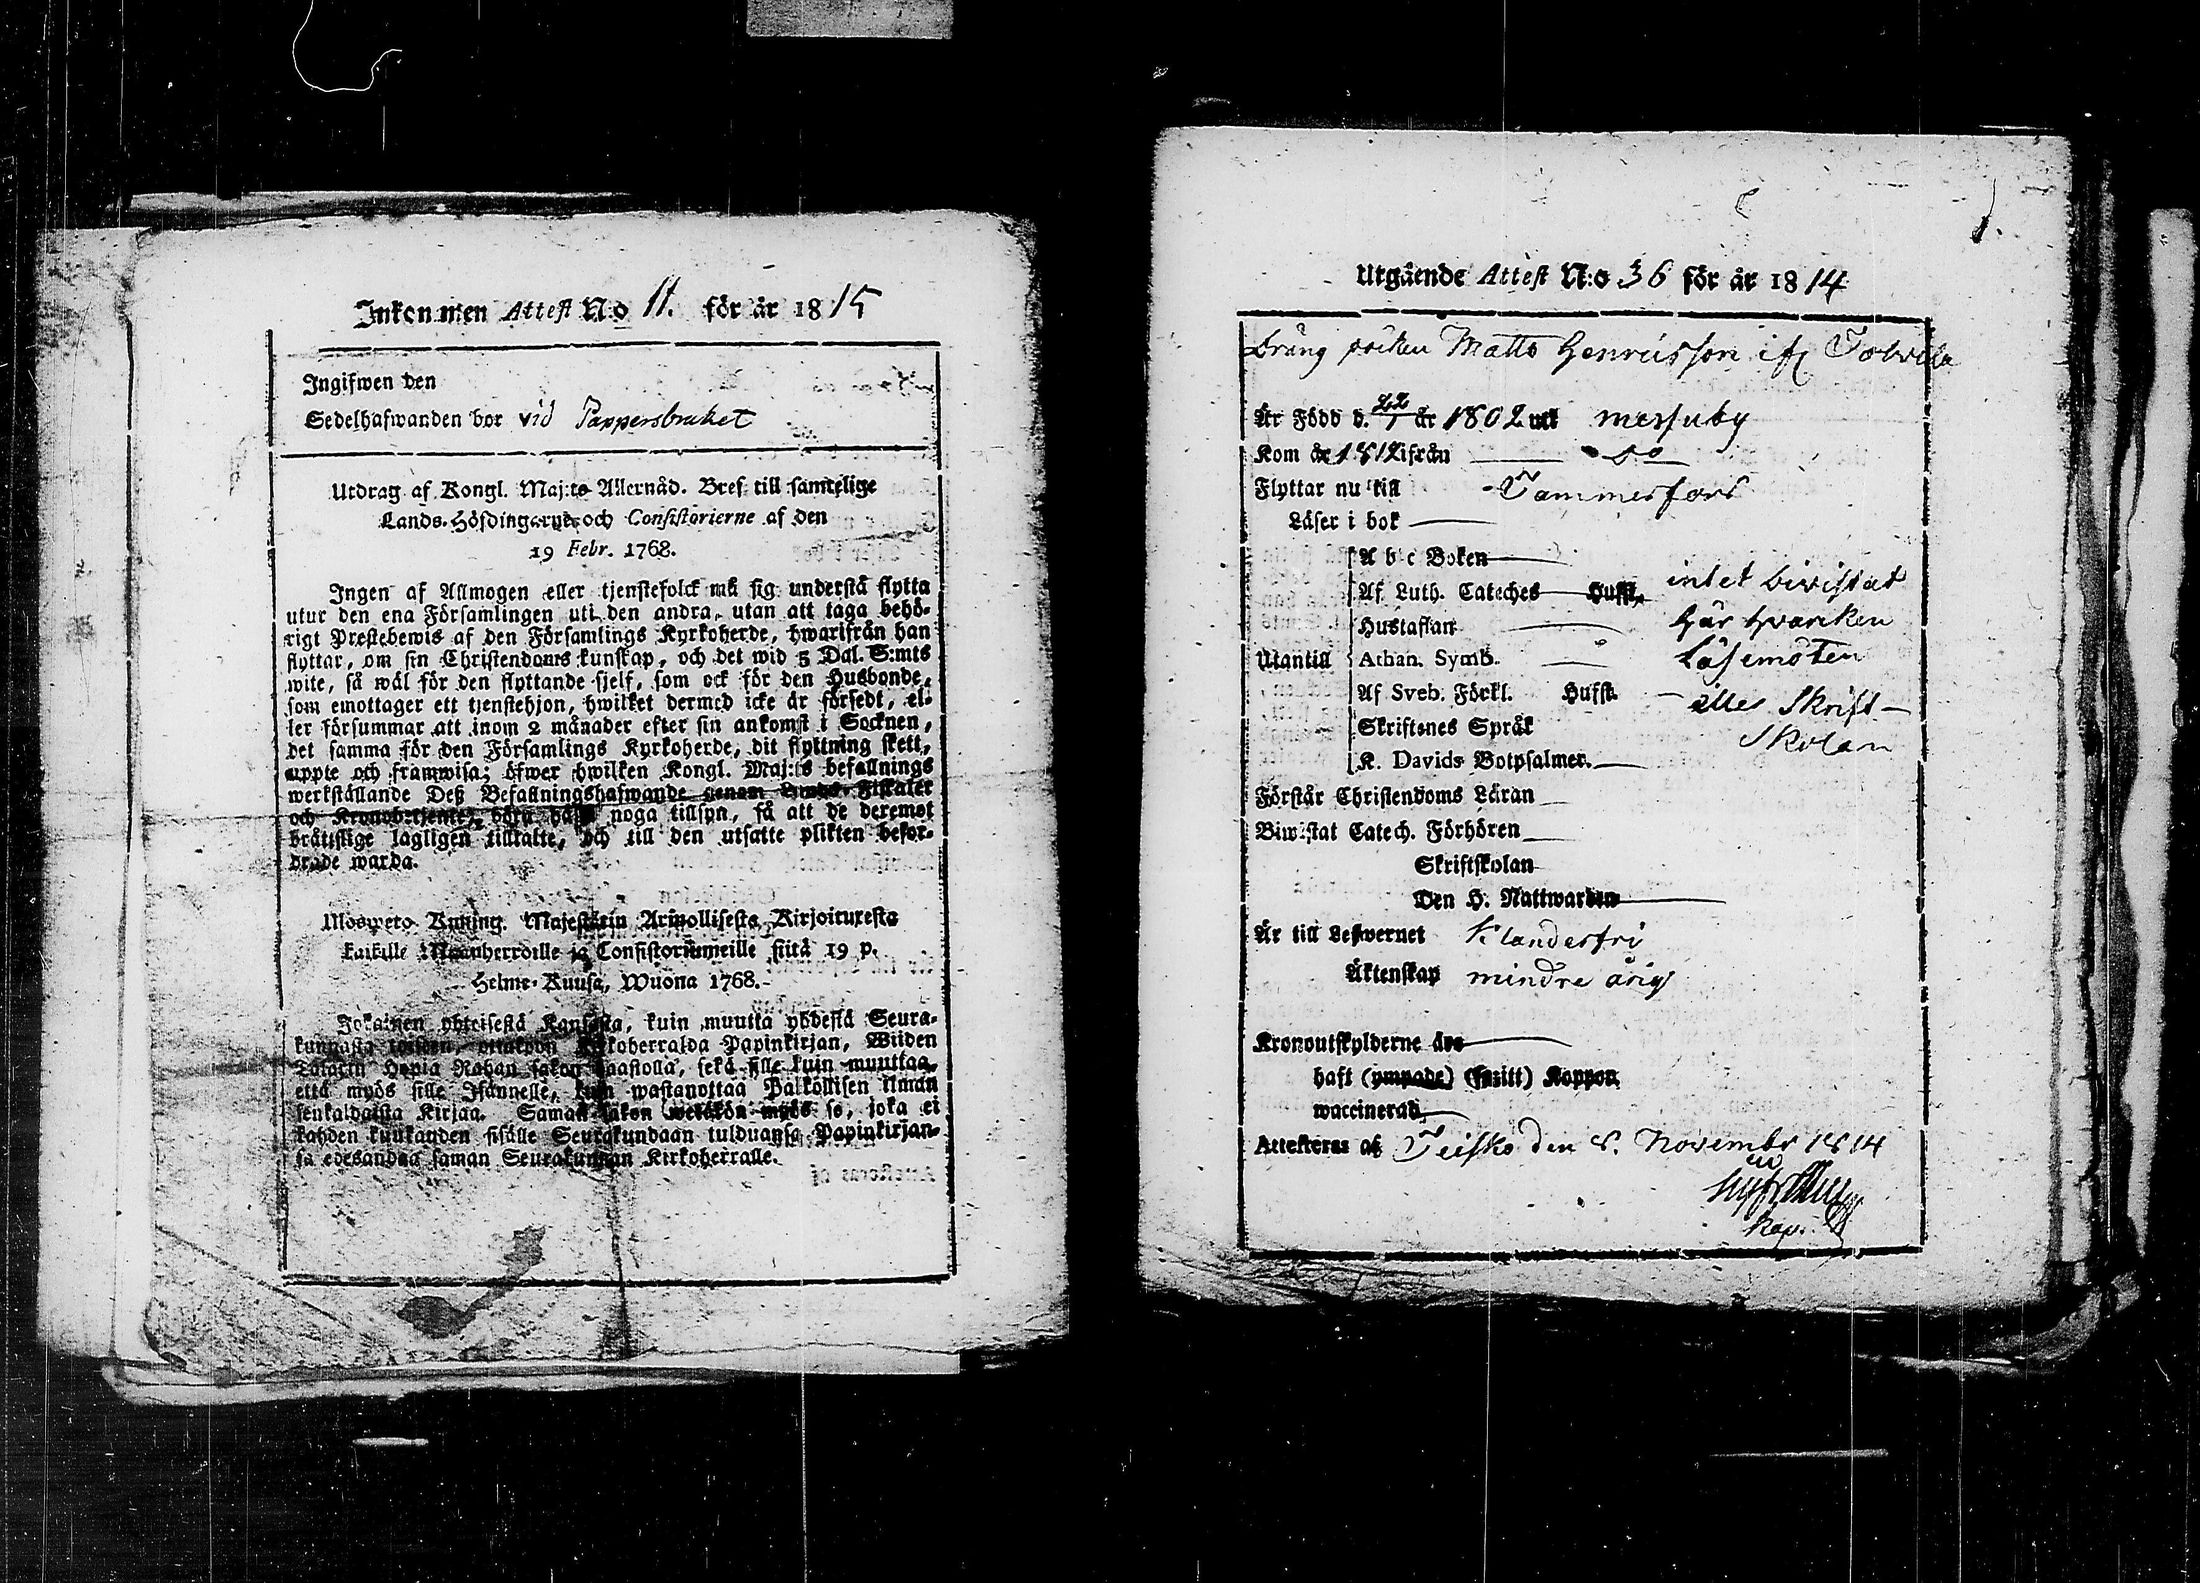 Inkommen Attest No 11. för år 1815
Ingifwen den
Sedelhafwanden bor vid Pappersbruket
Utdrag af Kongl. Maj:ts Allernåd. Bref till samtelige
Lands-Höfdingarne och Consistorierne af den
19 Febr. 1768.
Ingen af Allmogen eller tjenstefolck må sig understå flytta
utur den ena Församlingen uti den andra, utan att taga behö-
rigt Prestebewis af den Församlings Kyrkoherde, hwarifrån han
flyttar, om sin Christendoms kunskap, och det wid 5 Dal. S:mts
wite, så wäl för den flyttande sjelf, som ock för den Husbonde,
som emottager ett tjenstehjon, hwilket dermed icke är försedt, el-
ler försummar att inom 2 månader efter sin ankomst i Socknen,
det samma för den Församlings Kyrkoherde, dit flyttning skett,
uppte och framwisa; öfwer hwilken Kongl. Maj:ts befallnings
werkställande Deß Befallningshafwande genom Lands-Fiskaler
och Kronobetjente, böra hafwa noga tillsyn, så att de deremot
brättslige lagligen tilltalte, och till den utsatte plikten befor-
drade warda.
Ulosweto Kuning. Majestätin Armollisesta Kirjoituxesta
kaikille Maanherroille ja Consistoriumeille siitä 19 p.
Helme-Kuusa, Wuona 1768.
Jokainen yhteisestä Kansasta, kuin muutta yhdestä Seura-
kunnasta toiseen, ottakoon Kirkoherralda Papinkirjan, Wiiden
Talarin Hopia Rahan sakon haastolla, sekä sille kuin muuttaa,
että myös sille Isännelle, kuin wastanottaa Palkollisen ilman
senkaldaista Kirjaa. Saman sakon wetäkön myös se, joka ei
kahden kuukauden sisälle Seurakundaan tulduansa Papinkirjan-
sa edesandaa saman Seurakunnan Kirkoherralle.
Utgående Attest N:o 36 för år 1814
Dräng pocken Matts Henricsson ifr Tolvila
Är Född d. 22/1 år 1802 uti messuby
Kom år 1812 ifrån do
Flyttar nu till Tammerfors
Läser i bok
A b c Boken
Af Luth. Cateches Hufst. intet bivistat
Hustaflan här hvarcken
Utantill Athan. Symb. Läsemöten
Af Sveb. Förkl. Hufst. eller Skrift-
Skriftenes Språk Skolan
K. Davids Botpsalmer.
Förstår Christendoms Läran
Biwistat Catech. Förhören
Skriftskolan
Den H. Nattwarden
Är till Lefwernet Klanderfri
Äktenskap mindre årig
Kronoutskylderne äro
haft (ympade) (sjelfmitt) Koppor
waccinerad
Attesteras af Teisko den 8. Novembr 1814
Kap.